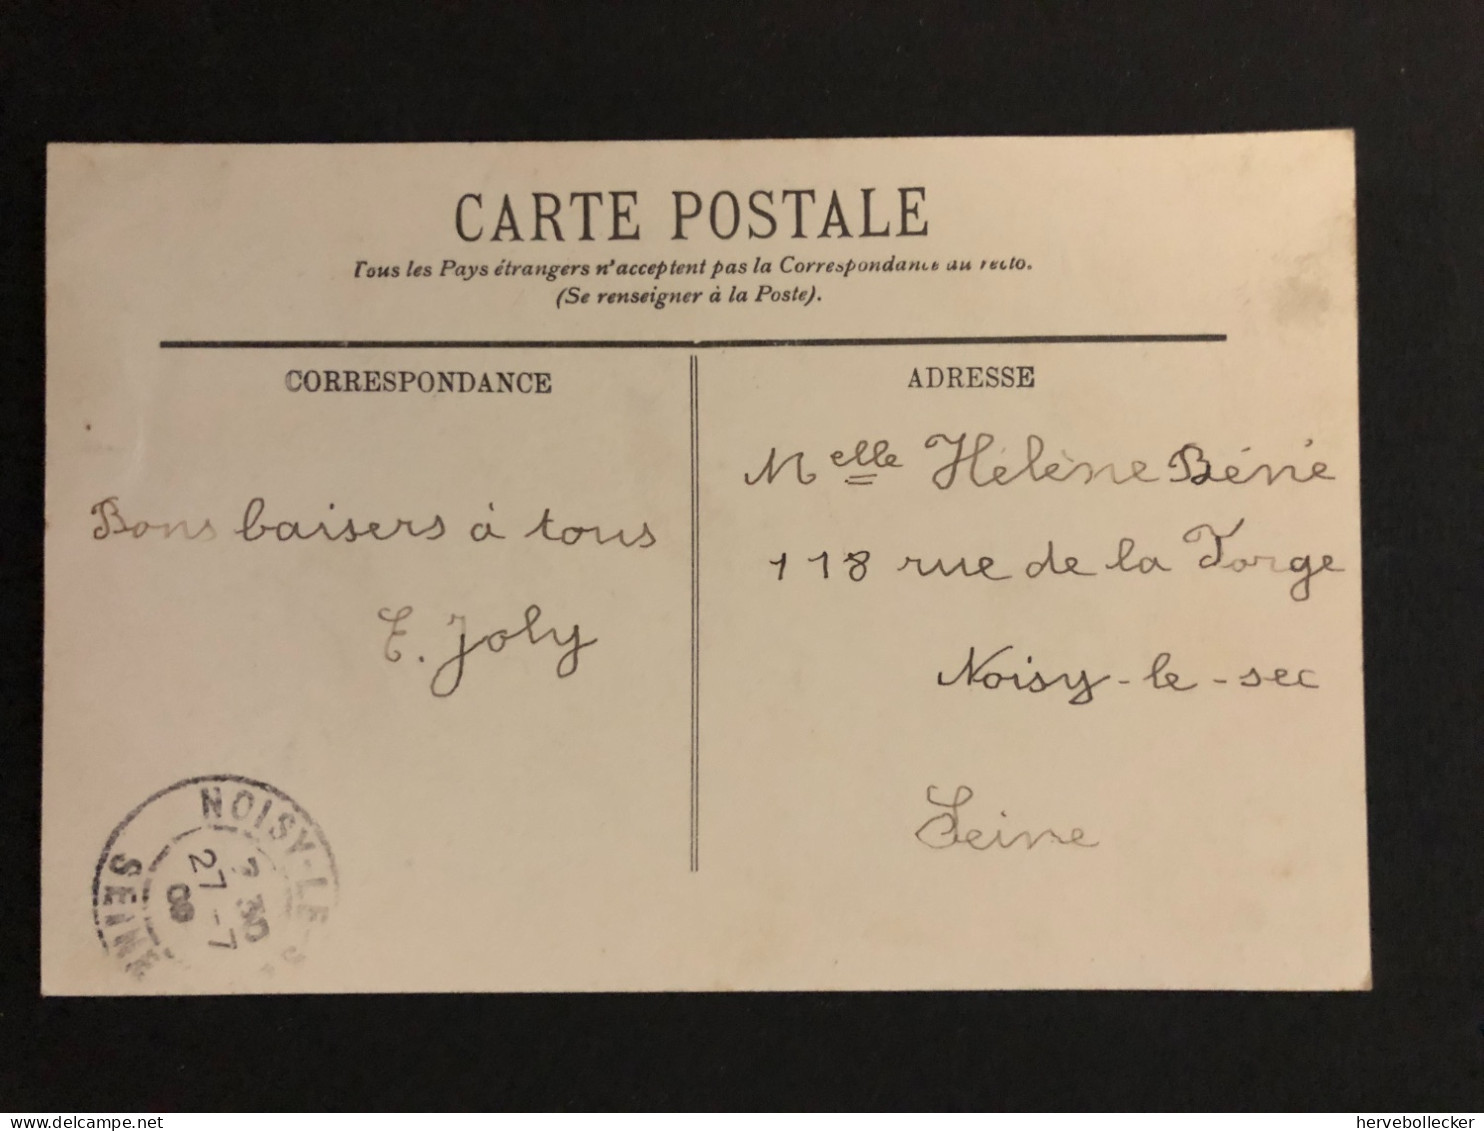 CARTE POSTALE
Tous les Pays étrangers n'acceptent pas la Correspondance au recto.
(Se renseigner à la Poste).
CORRESPONDANCE
Bons baisers à tous
E. Joly
ADRESSE
Melle Hélène Béné
118 rue de la Forge
Noisy-le-sec
Seine
NOISY-LE-
SEINE
30
27 -7
hervebollecker